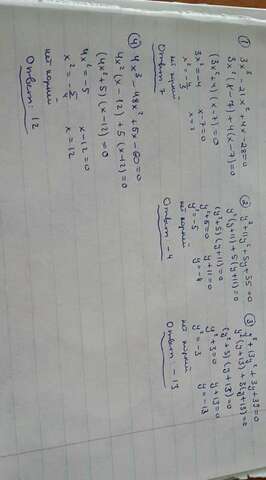 ① 3x³-21x²+4x-28=0
3x²(x-7)+4(x-7)=0
(3x²+4)(x-7)=0
3x²=-4 x-7=0
x²=-4/3 x=7
нет корней
Ответ: 7
② y³+11y²+5y+55=0
y²(y+11)+5(y+11)=0
(y²+5)(y+11)=0
y²+5=0 y+11=0
y²=-5 y=-11
нет корней
③ y³+13y²+3y+39=0
y²(y+13)+3(y+13)=0
(y²+3)(y+13)=0
y²+3=0 y+13=0
y²=-3 y=-13
нет корней
Ответ: -13
④ 4x³-48x²+5x-60=0
4x²(x-12)+5(x-12)=0
(4x²+5)(x-12)=0
4x²=-5 x-12=0
x²=-5/4 x=12
нет корней
Ответ: 12